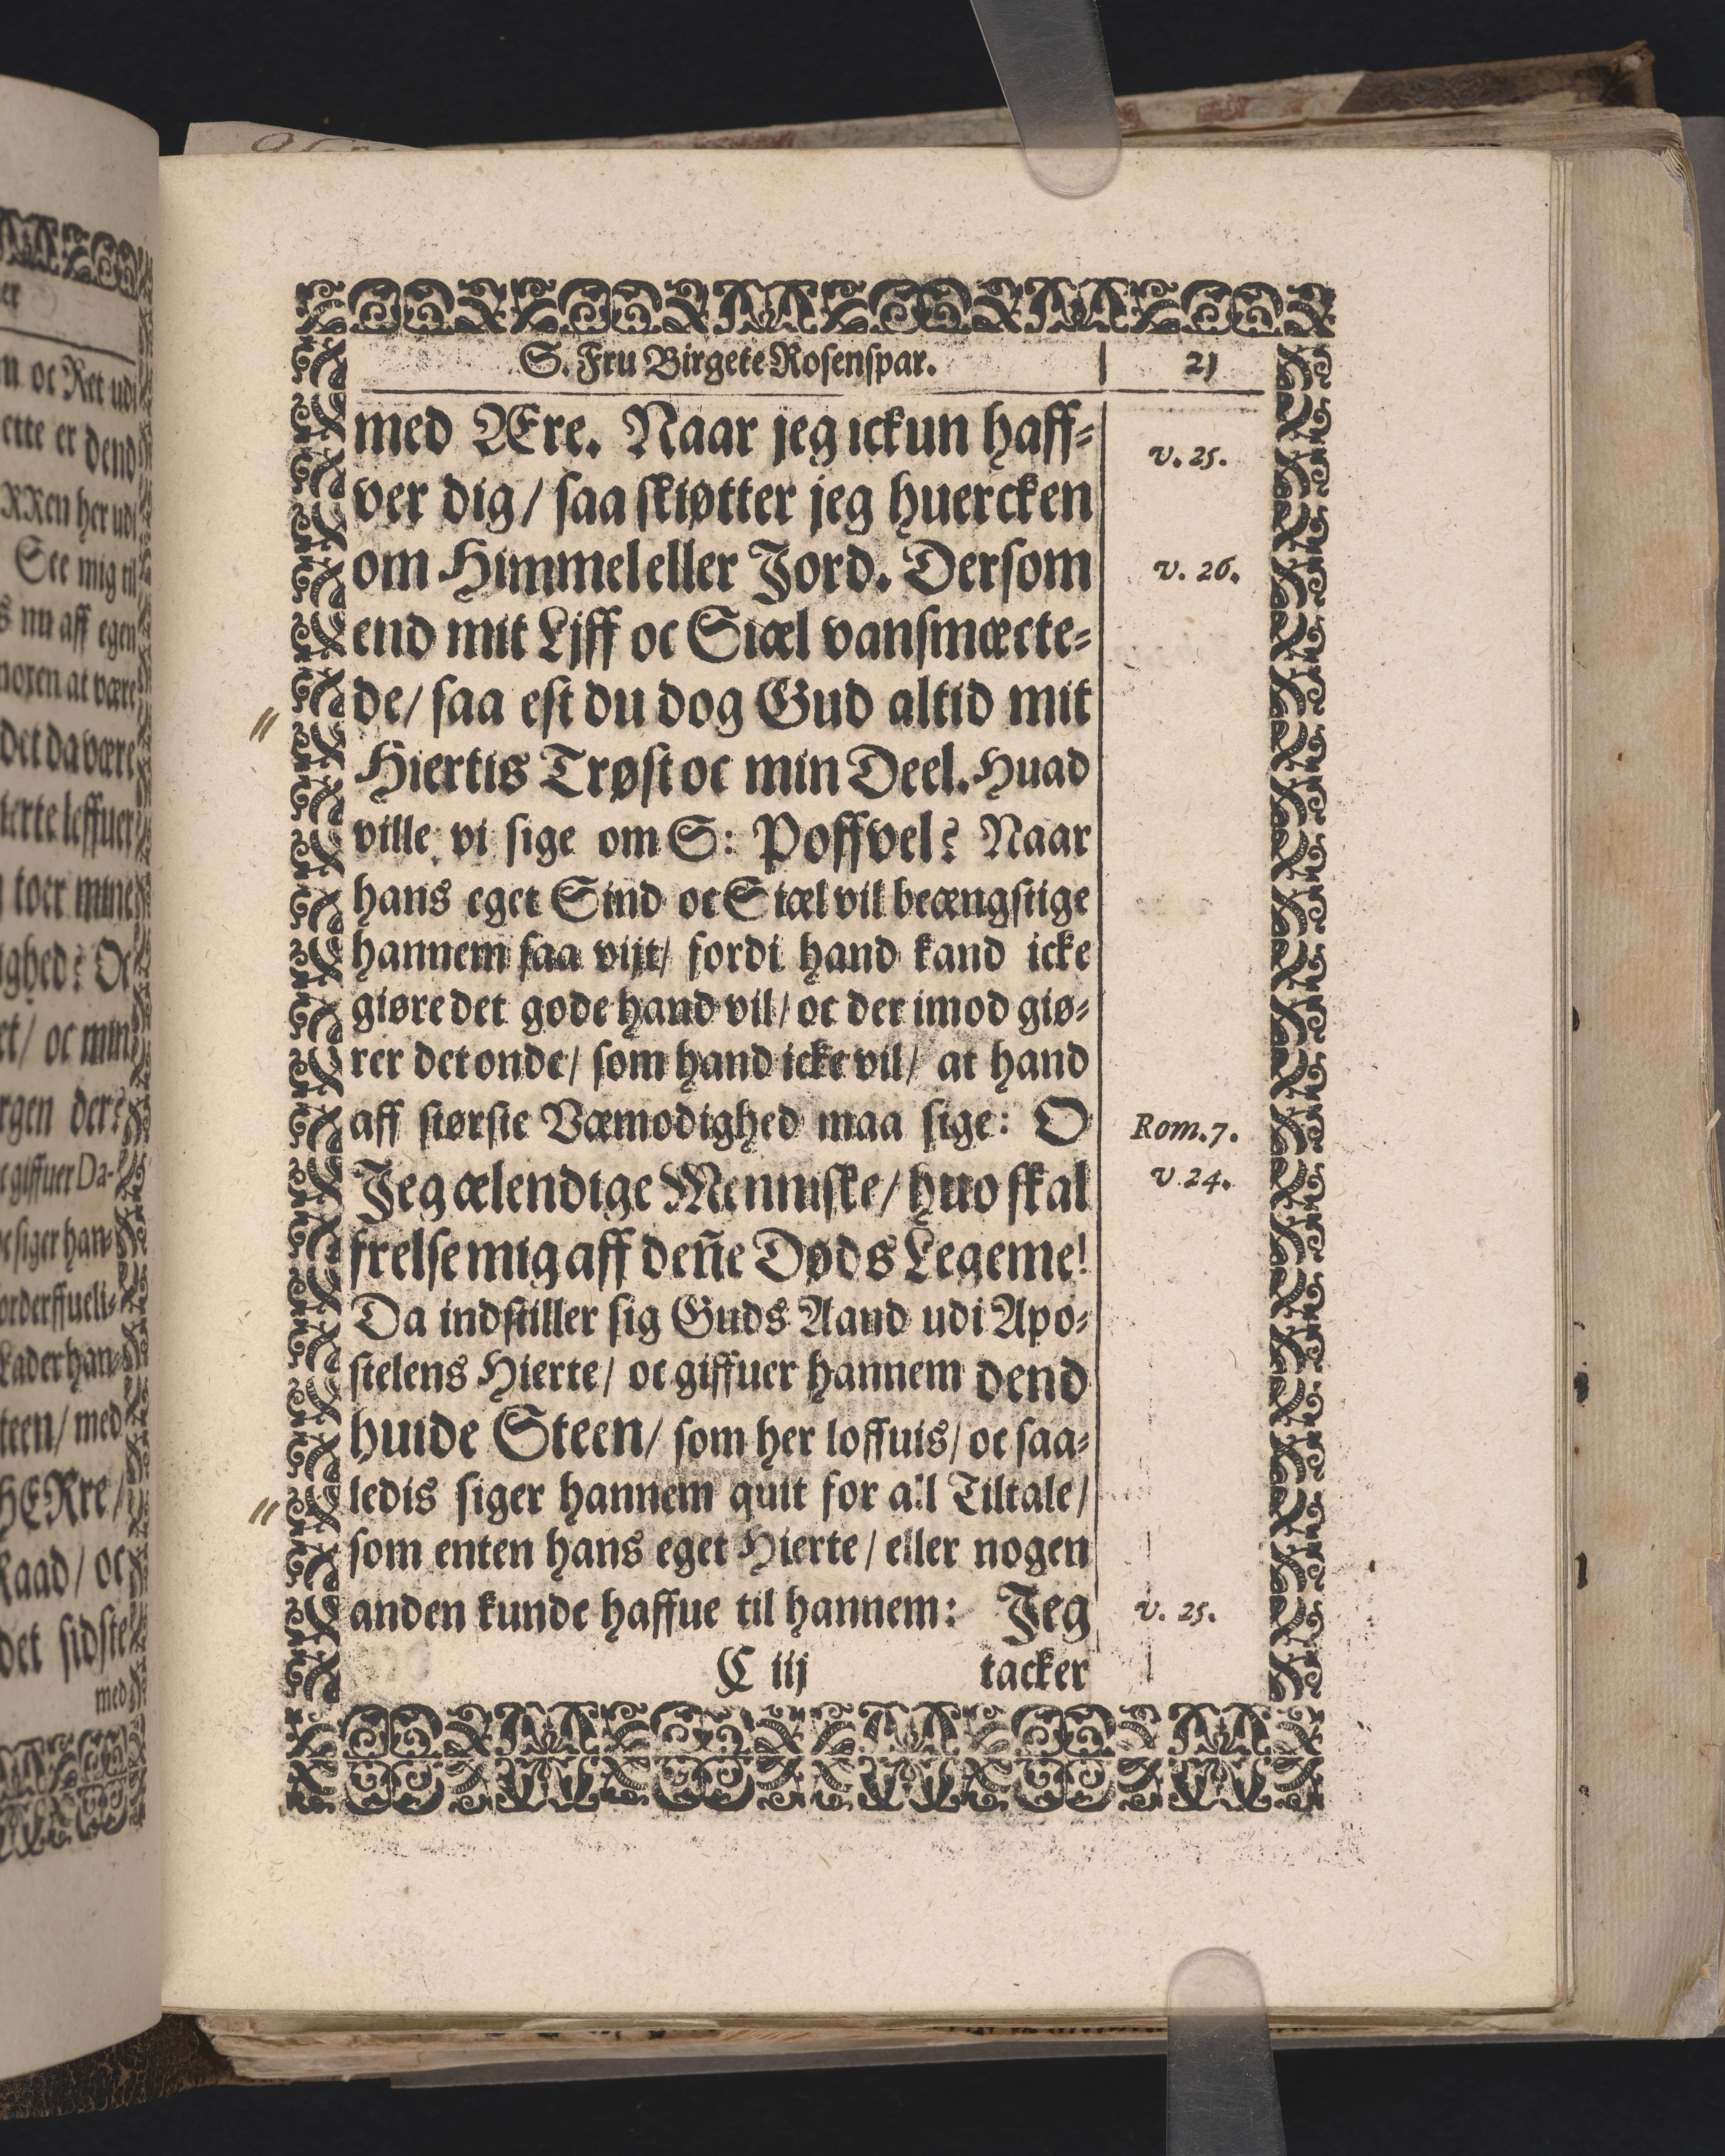 S. Fru Birgete Rosenspar. 21
med Ære. Naar jeg ickun haff-
ver dig/ saa skiøtter jeg huercken
om Himmel eller Jord. Dersom
end mit Ljff oc Siæl vansmæcte-
de/ saa est du dog Gud altid mit
Hiertis Trøst oc min Deel. Huad
ville vi sige om S: Poffvel? Naar
hans eget Sind oc Siæl vil beængstige
hannem saa vijt/ fordi hand kand icke
giøre det gode hand vil/ oc der imod giø-
rer det onde/ som hand icke vil/ at hand
aff største Væmodighed maa sige: O
Jeg ælendige Menniske/ huo skal
frelse mig aff deñe Døds Legeme!
Da indstiller sig Guds Aand udi Apo-
stelens Hierte/ oc giffuer hannem dend
huide Steen/ som her loffuis/ oc saa-
ledis siger hannem quit for all Tiltale/
som enten hans eget Hierte/ eller nogen
anden kunde haffue til hannem: Jeg
C iij tacker
v. 25.
v. 26.
Rom. 7.
v. 24.
v. 25.
er
oc Ret udi
ette er dend
RRen her udi
See mig til
s nu aff egen
noxen at være
det da være
ierte leffuer
toer mine
ighed? Oc
et/ oc min
rgen der?
giffuer Da-
oc siger han-
orderffueli-
Lader han-
teen/ med
HERre/
Raad/ oc
det sidste
med